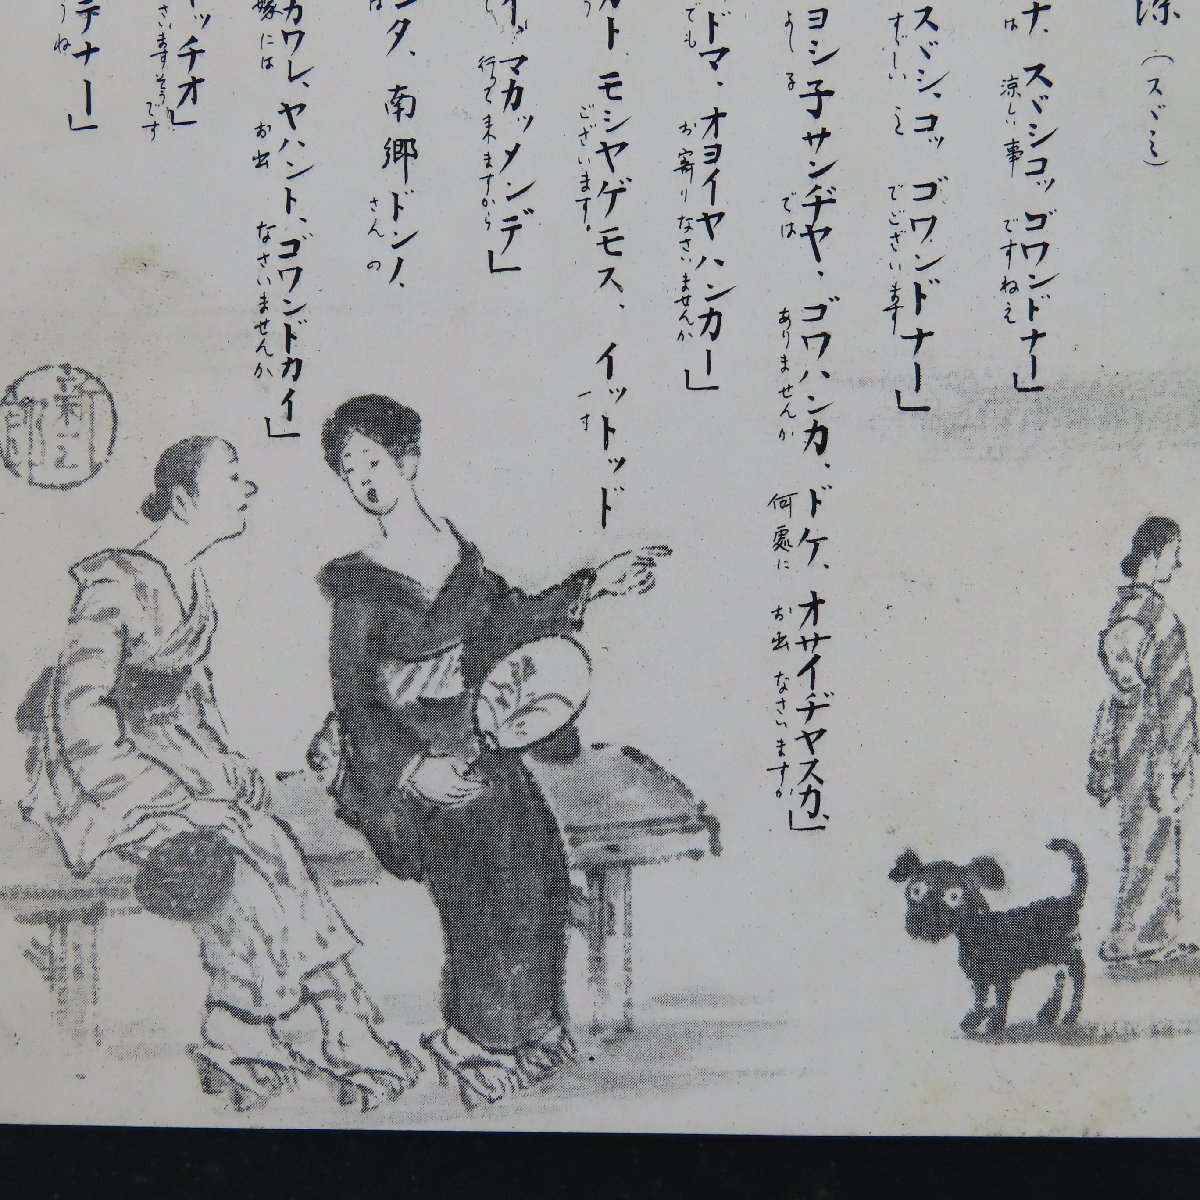 涼(スヾミ)
ナ、スヾシコッゴワンドナー」
は 涼しい事 ですねえ
スヾシ、コッ ゴワンドナー」
すゞしい こと でございます
ヨシ子サンヂヤ、ゴワハンカ、ドケ、オサイヂヤスカ」
よし子 では ありませんか 何處に お出なさいますか
ドマ、オヨイヤハンカー」
でも お寄りなさいませんか
カト、モシヤゲモス、イットッド
ございます。 一寸
マカッメンデ」
行って来ますから
ンタ、南郷ドンノ、
は さんの
カワレ、ヤハント、ゴワンドカイ」
嫁には お出 なさいませんか
ッチオ」
さいますそうです
デナー」
うね
新
郎